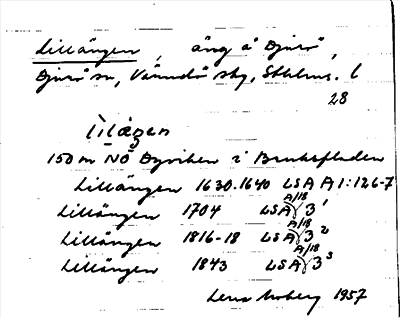 Lillängen, äng å Djurö,
Djurö sn, Värmdö skg, Sthlms. l
28
Lilägen
150 m NÖ Dyviken i
Lillängen 1630-1640 LSA A 1:126-7
Lillängen 1704 LSA A/18 3 1
Lillängen 1816-18 LSA A/18 3 2
Lillängen 1843 LSA A/18 3 3
Lena Moberg 1957